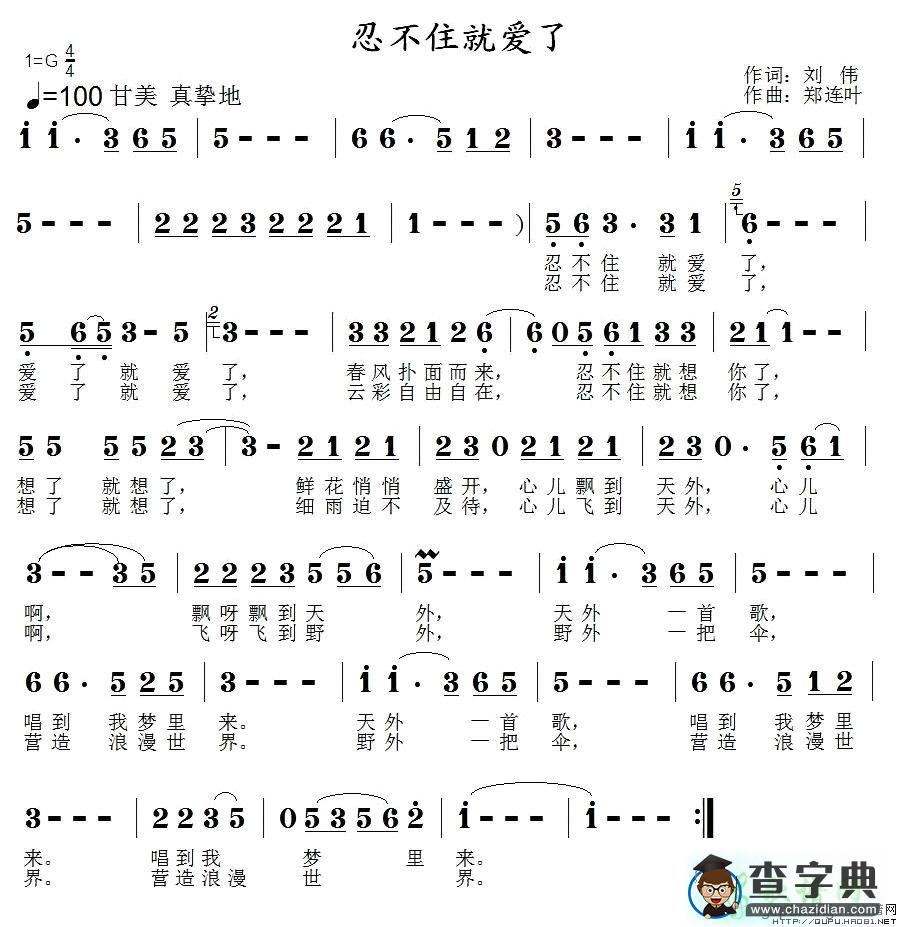 忍不住就爱了
1=G 4/4
作词：刘 伟
♩=100 甘美 真挚地
作曲：郑连叶
i i· 3 6 5 | 5 - - - | 6 6· 5 1 2 | 3 - - - | i i· 3 6 5 |
5 - - - | 2 2 2 3 2 2 2 1 | 1 - - - ) | 5 6 3· 3 1 | 5 1 6 - - - |
忍不住 就爱 了，
忍不住 就爱 了，
5 6 5 3 - 5 | 2 3 - - - | 3 3 2 1 2 6 | 6 0 5 6 1 3 3 | 2 1 1 - - |
爱 了 就 爱 了， 春风扑面而来， 忍不住就想 你了，
爱 了 就 爱 了， 云彩自由自在， 忍不住就想 你了，
5 5 5 5 2 3 | 3 - 2 1 2 1 | 2 3 0 2 1 2 1 | 2 3 0· 5 6 1 |
想了 就想了， 鲜花悄悄 盛开，心儿飘到 天外， 心儿
想了 就想了， 细雨迫不 及待，心儿飞到 天外， 心儿
3 - - 3 5 | 2 2 2 3 5 5 6 | 5 - - - | i i· 3 6 5 | 5 - - - |
啊， 飘呀飘到天 外， 天外 一首 歌，
啊， 飞呀飞到野 外， 野外 一把 伞，
6 6· 5 2 5 | 3 - - - | i i· 3 6 5 | 5 - - - | 6 6· 5 1 2 |
唱到 我梦里 来。 天外 一首 歌， 唱到 我梦里
营造 浪漫世 界。 野外 一把 伞， 营造 浪漫世
3 - - - | 2 2 3 5 | 0 5 3 5 6 2 | i - - - | i - - - :||
来。 唱到我 梦 里 来。
界。 营造浪漫 世 界。
查字典
www.chazidian.com